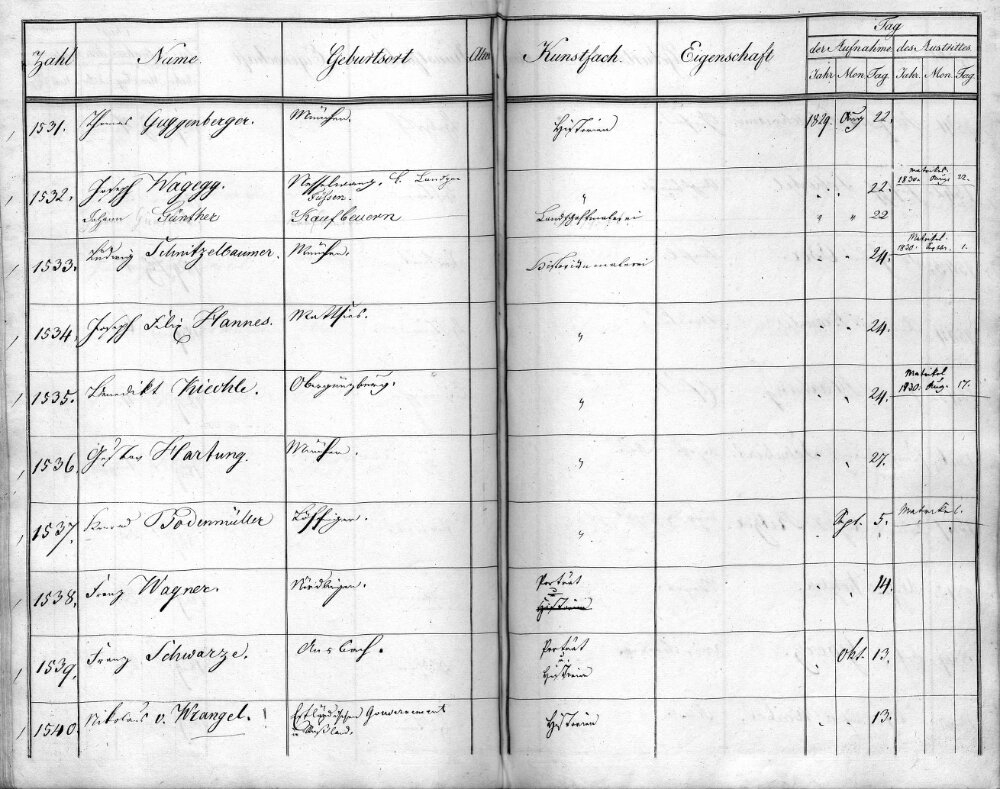 Zahl Name. Geburtsort Alter Kunstfach. Eigenschaft Tag
der Aufnahme des Austrittes.
Jahr Mon. Tag. Jahr. Mon. Tag
1531. Thomas Guggenberger. München. Historien 1829. Aug 22.
1532. Joseph Wagegg. Nesselwang, k. Landger. Füssen. " " " 22. Matrikel 1830. Aug. 22.
Johann Günther Kaufbeuern Landschaftmalerei " " 22
1533. Ludwig Schnitzelbaumer. München. Historienmalerei " " 24. Matrikel 1830. 1.
1534. Joseph Felix Hannes. Matthies. " " " 24.
1535. Benedikt Kiechle. Obergünzburg. " " " 24. Matrikel 1830. Aug. 17.
1536. Gustav Hartung. München. " " " 27.
1537. Bodenmüller Löffingen. " " Sept. 5. Matrikel.
1538. Franz Wagner. Nördlingen. Porträt u Historien " " 14.
1539. Franz Schwarze. Ansbach. Porträt u Historien " Okt. 13.
1540. Nikolaus v. Wrangel. ! Estländischen Gouvernement in Rußland. Historien " " 13.